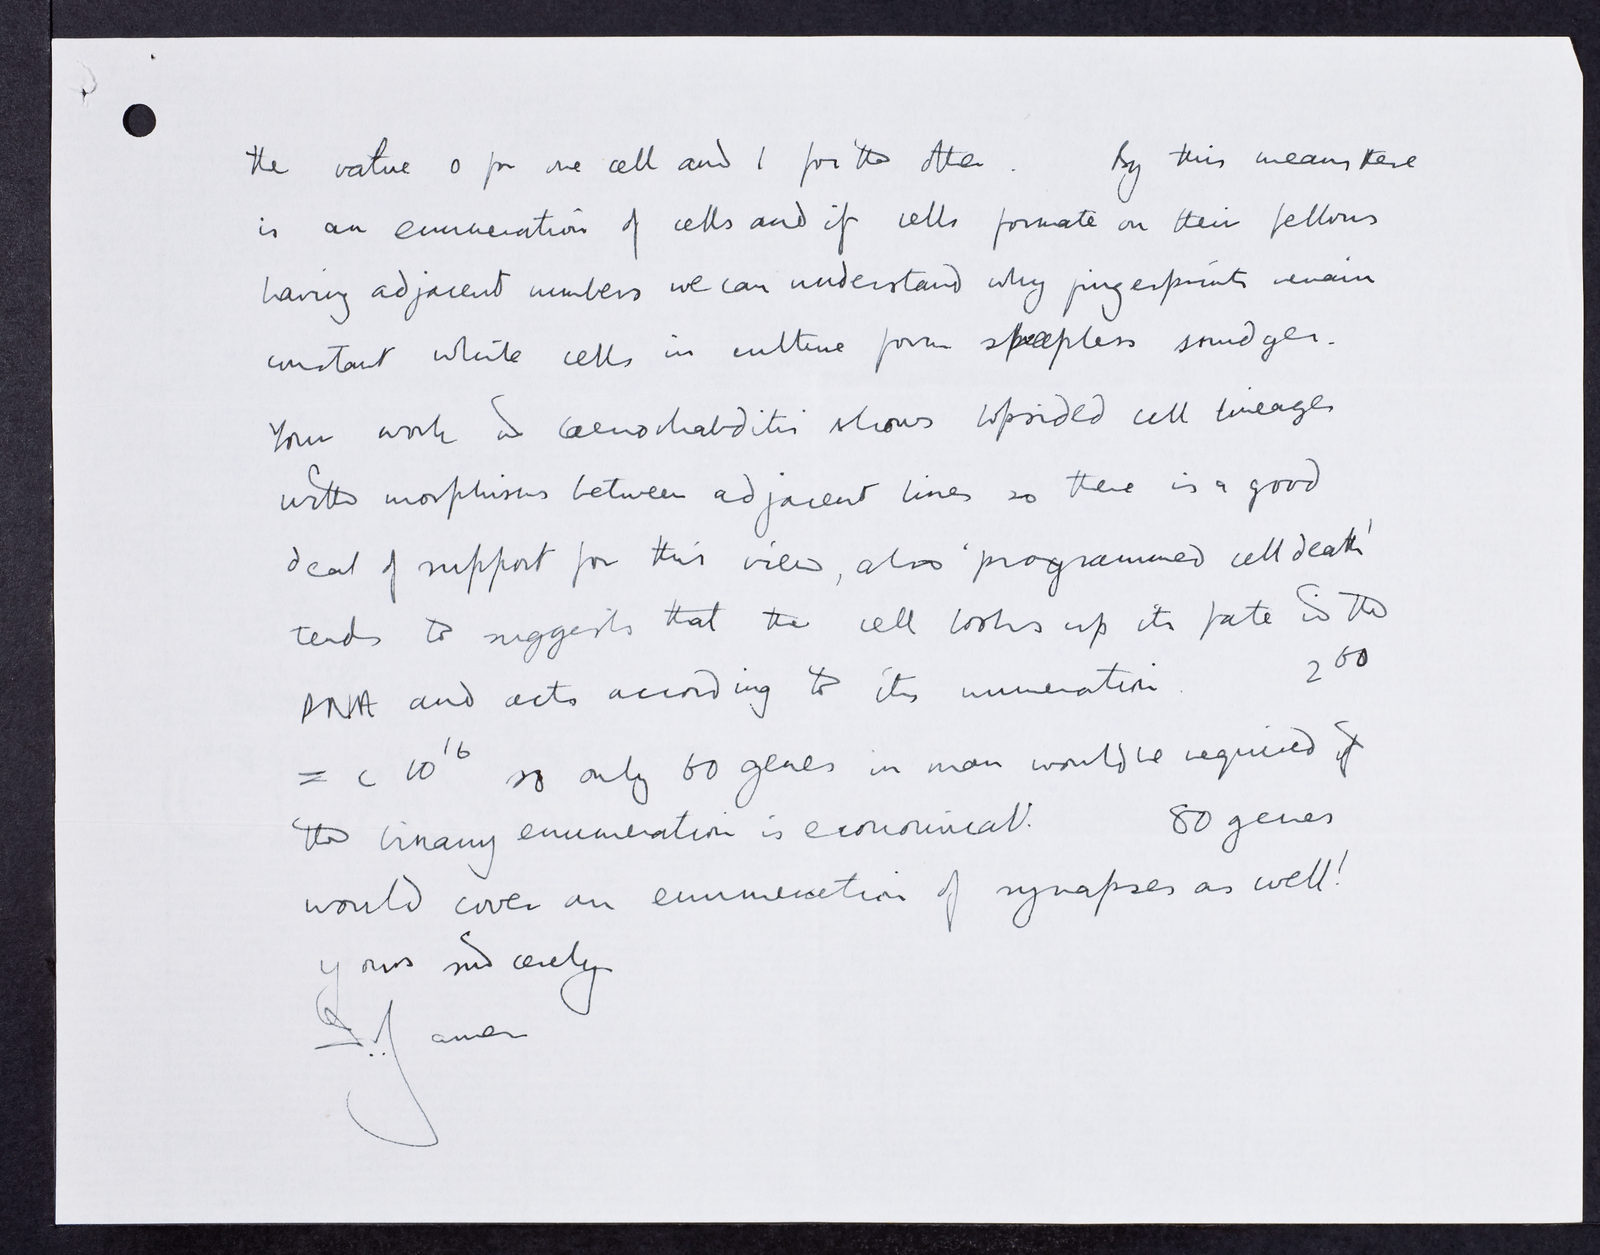 the value 0 for one cell and 1 for the other. By this means there
is an enumeration of cells and if cells formate on their fellows
having adjacent numbers we can understand why fingerprints remain
constant while cells in culture form shapeless smudges.
Your work in Caenorhabditis shows lopsided cell lineages
with morphisms between adjacent lines so there is a good
deal of support for this view, also 'programmed cell death'
tends to suggests that the cell looks up its fate in the
DNA and acts according to its numeration. 2^60
= c 10^16 so only 60 genes in man would be required if
the binary enumeration is economical. 80 genes
would cover an enumeration of synapses as well!
Yours sincerely
James